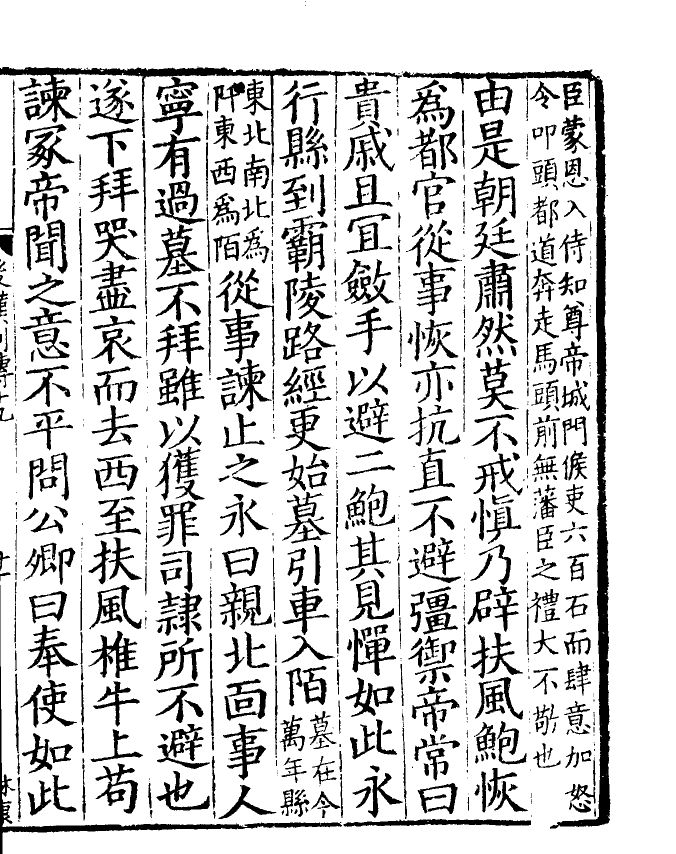 臣蒙恩入侍知尊帝城門候吏六百石而肆意加怒
令叩頭都道奔走馬頭前無藩臣之禮大不敬也
由是朝廷肅然莫不戒愼乃辟扶風鮑恢
爲都官從事恢亦抗直不避彊禦帝常曰
貴戚且宜斂手以避二鮑其見憚如此永
行縣到霸陵路經更始墓引車入陌墓在今
萬年縣
東北南北爲
阡東西爲陌從事諫止之永曰親北面事人
寧有過墓不拜雖以獲罪司隸所不避也
遂下拜哭盡哀而去西至扶風椎牛上苟
諫冢帝聞之意不平問公卿曰奉使如此